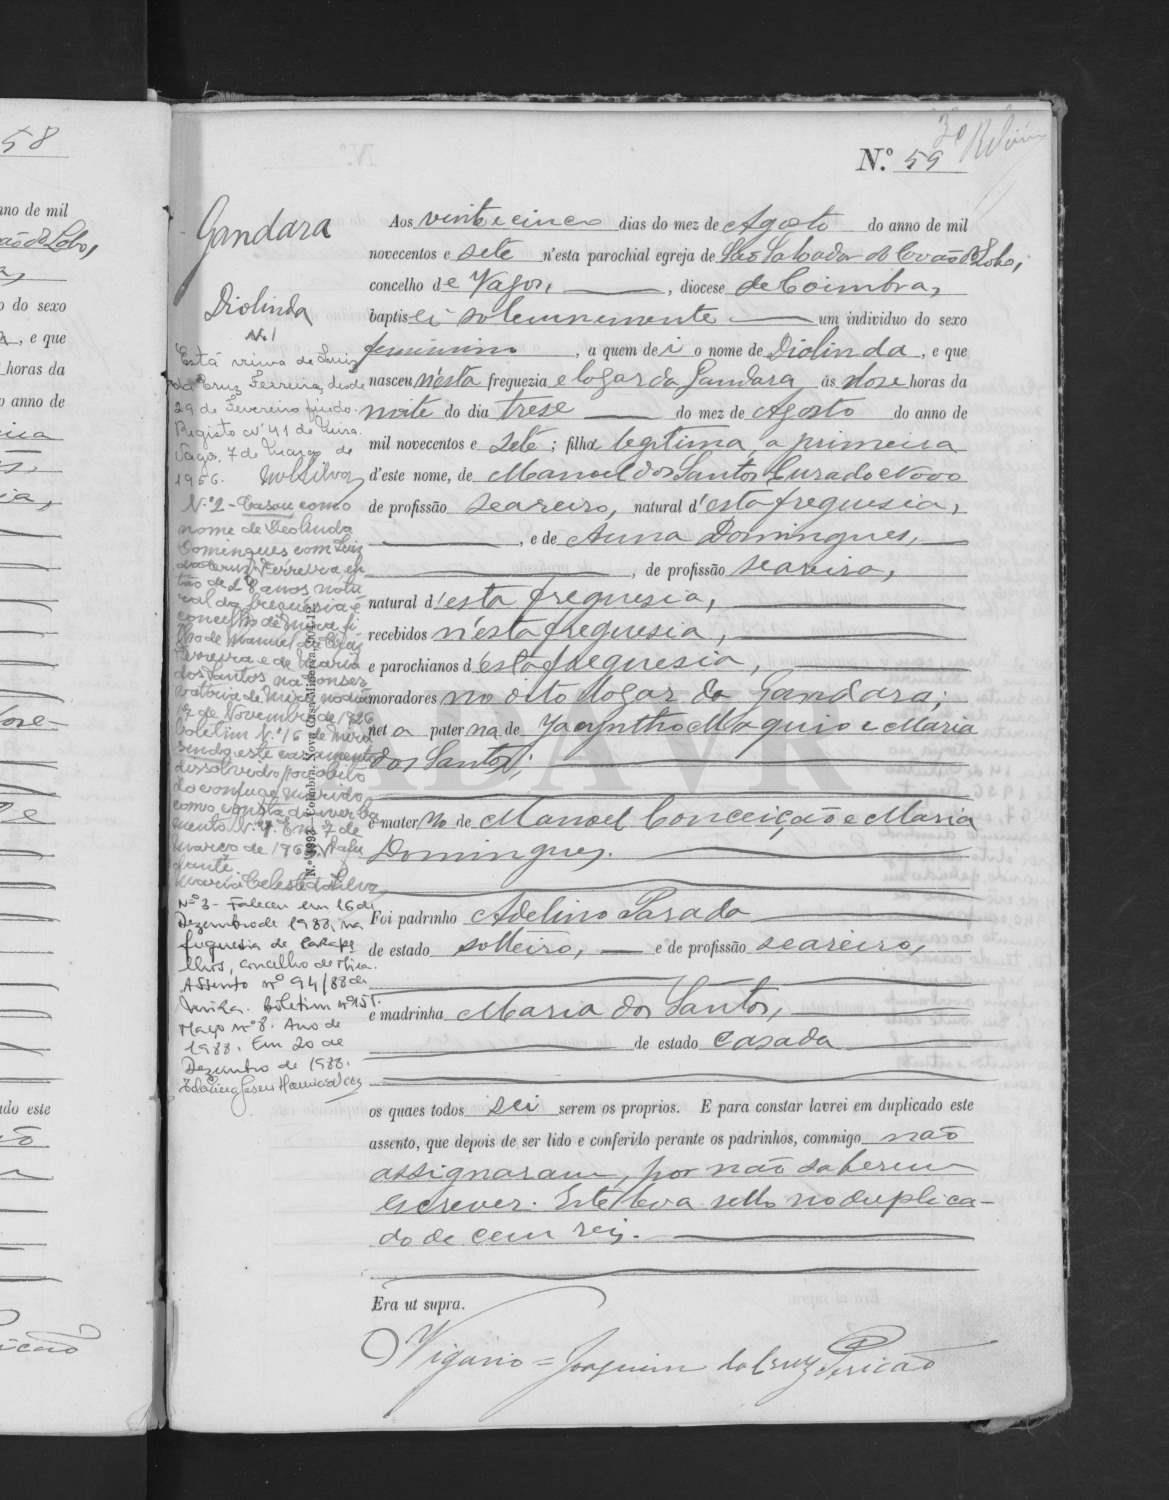 58
Nº 59
Gandara
Diolinda
Aos vinte e cinco dias do mez de Agosto do anno de mil
novecentos e sete n'esta parochial egreja de São Salvador de Covão do Lobo,
concelho de Vagos, diocese de Coimbra,
baptisei solemnemente um individuo do sexo
feminino, a quem dei o nome de Diolinda, e que
nasceu n'esta freguezia e logar da Gandara ás dose horas da
noite do dia trese do mez de Agosto do anno de
mil novecentos e sete; filha legitima, a primeira
d'este nome, de Manoel dos Santos Curado e Novo
de profissão seareiro, natural d'esta freguesia,
e de Anna Domingues,
de profissão seareira,
natural d'esta freguesia,
recebidos n'esta freguesia,
e parochianos d'esta freguesia,
moradores no dito logar da Gandara;
neta paterna de Jacyntho Maquio e Maria
dos Santos;
e materna de Manoel Conceição e Maria
Domingues.
Foi padrinho Adelino Parada
de estado solteiro, e de profissão seareiro,
e madrinha Maria dos Santos,
de estado casada
os quaes todos sei serem os proprios. E para constar lavrei em duplicado este
assento, que depois de ser lido e conferido perante os padrinhos, commigo não
assignaram, por não saberem
escrever. Este leva sello no duplica-
do de cem reis.
Era ut supra.
O Vigario = Joaquim da Cruz Pericão
Nº 1
Está viuva de Luiz
da Cruz Ferreira, desde
29 de Fevereiro findo.
Registo nº 41 de Mira.
Vagos, 7 de Março de
1956.
N.º 2 - Casou com o
nome de Deolinda
Domingues com Luiz
da Cruz Ferreira en-
tão de 28 anos natu
ral da freguesia e
concelho de Mira fi
lho de Manuel da Cruz
Ferreira e de Maria
dos Santos na Conser
vatoria de Mira no dia
17 de Novembro de 1926
boletim N.º 16 de Mira
sendo este casamento
dissolvido por obito
do conjuge marido
como consta do averba
mento N.º 1. Em 7 de
Março de 1956. O Aju
dante
Maria Celeste da Silva
Nº 3 - Faleceu em 16 de
Dezembro de 1988, na
freguesia de Carape
lhos, concelho de Mira.
Assento nº 94/88 de
Mira. Boletim nº 151.
Maço nº 8. Ano de
1988. Em 20 de
Dezembro de 1988.
ADAVR